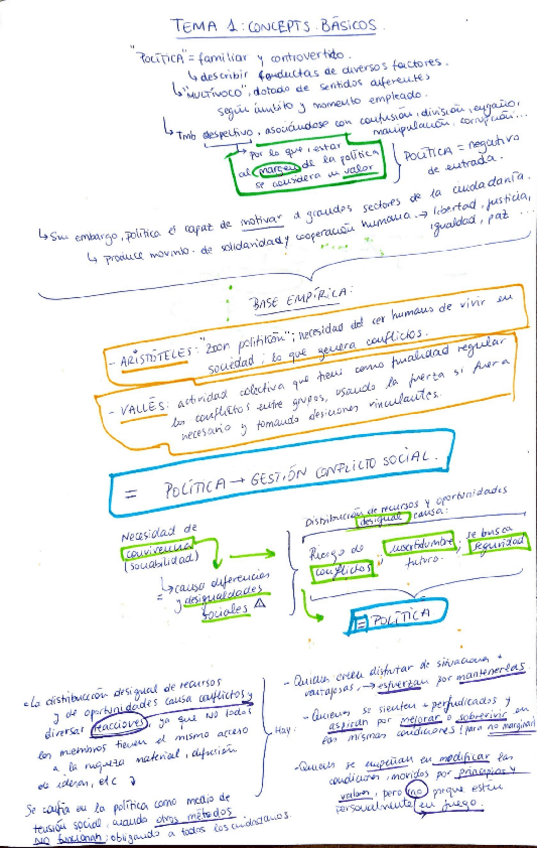 TEMA 1: CONCEPTS BÁSICOS.
"POLÍTICA" = familiar y controvertido.
↳ describir conductas de diversos factores.
↳ "MULTÍVOCO", dotado de sentidos diferentes
según ámbito y momento empleado.
↳ Tmb despectivo, asociándose con confusión, división, engaño,
manipulación, corrupción...
↳ por lo que, estar
al margen de la política
se considera un valor
POLÍTICA = negativo
de entrada.
↳ Sin embargo, política es capaz de motivar a grandes sectores de la ciudadanía.
↳ produce movimto. de solidaridad y cooperación humana → libertad, justicia,
igualdad, paz ...
BASE EMPÍRICA:
- ARISTÓTELES: "zoon politikón"; necesidad del ser humano de vivir en
sociedad; lo que genera conflictos.
- VALLÈS: actividad colectiva que tiene como finalidad regular
los conflictos entre grupos, usando la fuerza si fuera
necesario y tomando desiciones vinculantes.
= POLÍTICA → GESTIÓN CONFLICTO SOCIAL.
Necesidad de
convivencia
(sociabilidad)
= ↳ causa diferencias
y desigualdades
sociales ⚠
Distribución de recursos y oportunidades
desigual causa:
Riesgo de
conflictos
incertidumbre
futuro.
; se busca
seguridad
= POLÍTICA
* La distribución desigual de recursos
y de oportunidades causa conflictos y
diversas reacciones, ya que NO todos
los miembros tienen el mismo acceso
a la riqueza material, difusión
de ideas, etc
Se confía en la política como medio de
tensión social, cuando otros métodos
NO funcionan; obligando a todos los ciudadanos.
Hay:
- Quienes creen disfrutar de situaciones +
ventajosas, → esfuerzan por mantenerlas
- Quienes se sienten + perjudicados y
aspiran por mejorar o sobrevivir en
las mismas condiciones (para no marginar)
- Quienes se empeñan en modificar las
condiciones, movidos por principios y
valores, pero no porque estén
personalmente en juego.